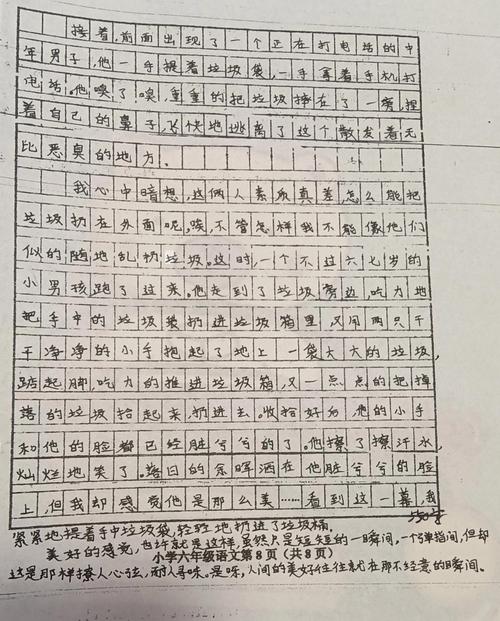 接着,前面出现了一个正在打电话的中
年男子,他一手提着垃圾袋,一手拿着手机打
电话。他嗅了嗅,重重的把垃圾摔在了一旁,捏
着自己的鼻子,飞快地逃离了这个散发着无
比恶臭的地方。
我心中暗想,这俩人素质真差,怎么能把
垃圾扔在外面呢,唉,不管怎样我不能像他们
似的随地乱扔垃圾。这时,一个不过六七岁的
小男孩跑了过来。他走到了垃圾旁边,吃力地
把手中的垃圾袋扔进垃圾箱里,又用两只干
干净净的小手抱起了地上一袋大大的垃圾,
踮起脚,吃力的推进垃圾箱,又一点点的把掉
落的垃圾拾起来扔进去。收拾好后他的小手
和他的脸都已经脏兮兮的了。他擦了擦汗水,
灿烂地笑了。落日的余晖洒在他脏兮兮的脸
上,但我却感觉他是那么美……看到这一幕,我
550字
紧紧地提着手中垃圾袋,轻轻地扔进了垃圾桶。
美好的感觉,也许就是这样,虽然只是短短的一瞬间,一个弹指间,但却
小学六年级语文第8页(共8页)
这是那样撩人心弦,耐人寻味。是啊,人间的美好往往就在那不经意的瞬间。